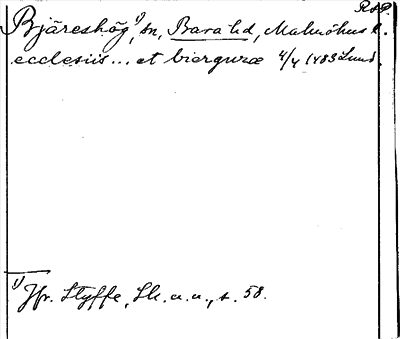 R.A.P.
Bjäreshög¹⁾, sn, Bara hd, Malmöhus l.
ecclesiis... et biergwræ 4/4 1483 Lund.
¹⁾ Jfr. Styffe, Sk. u. u., s. 58.